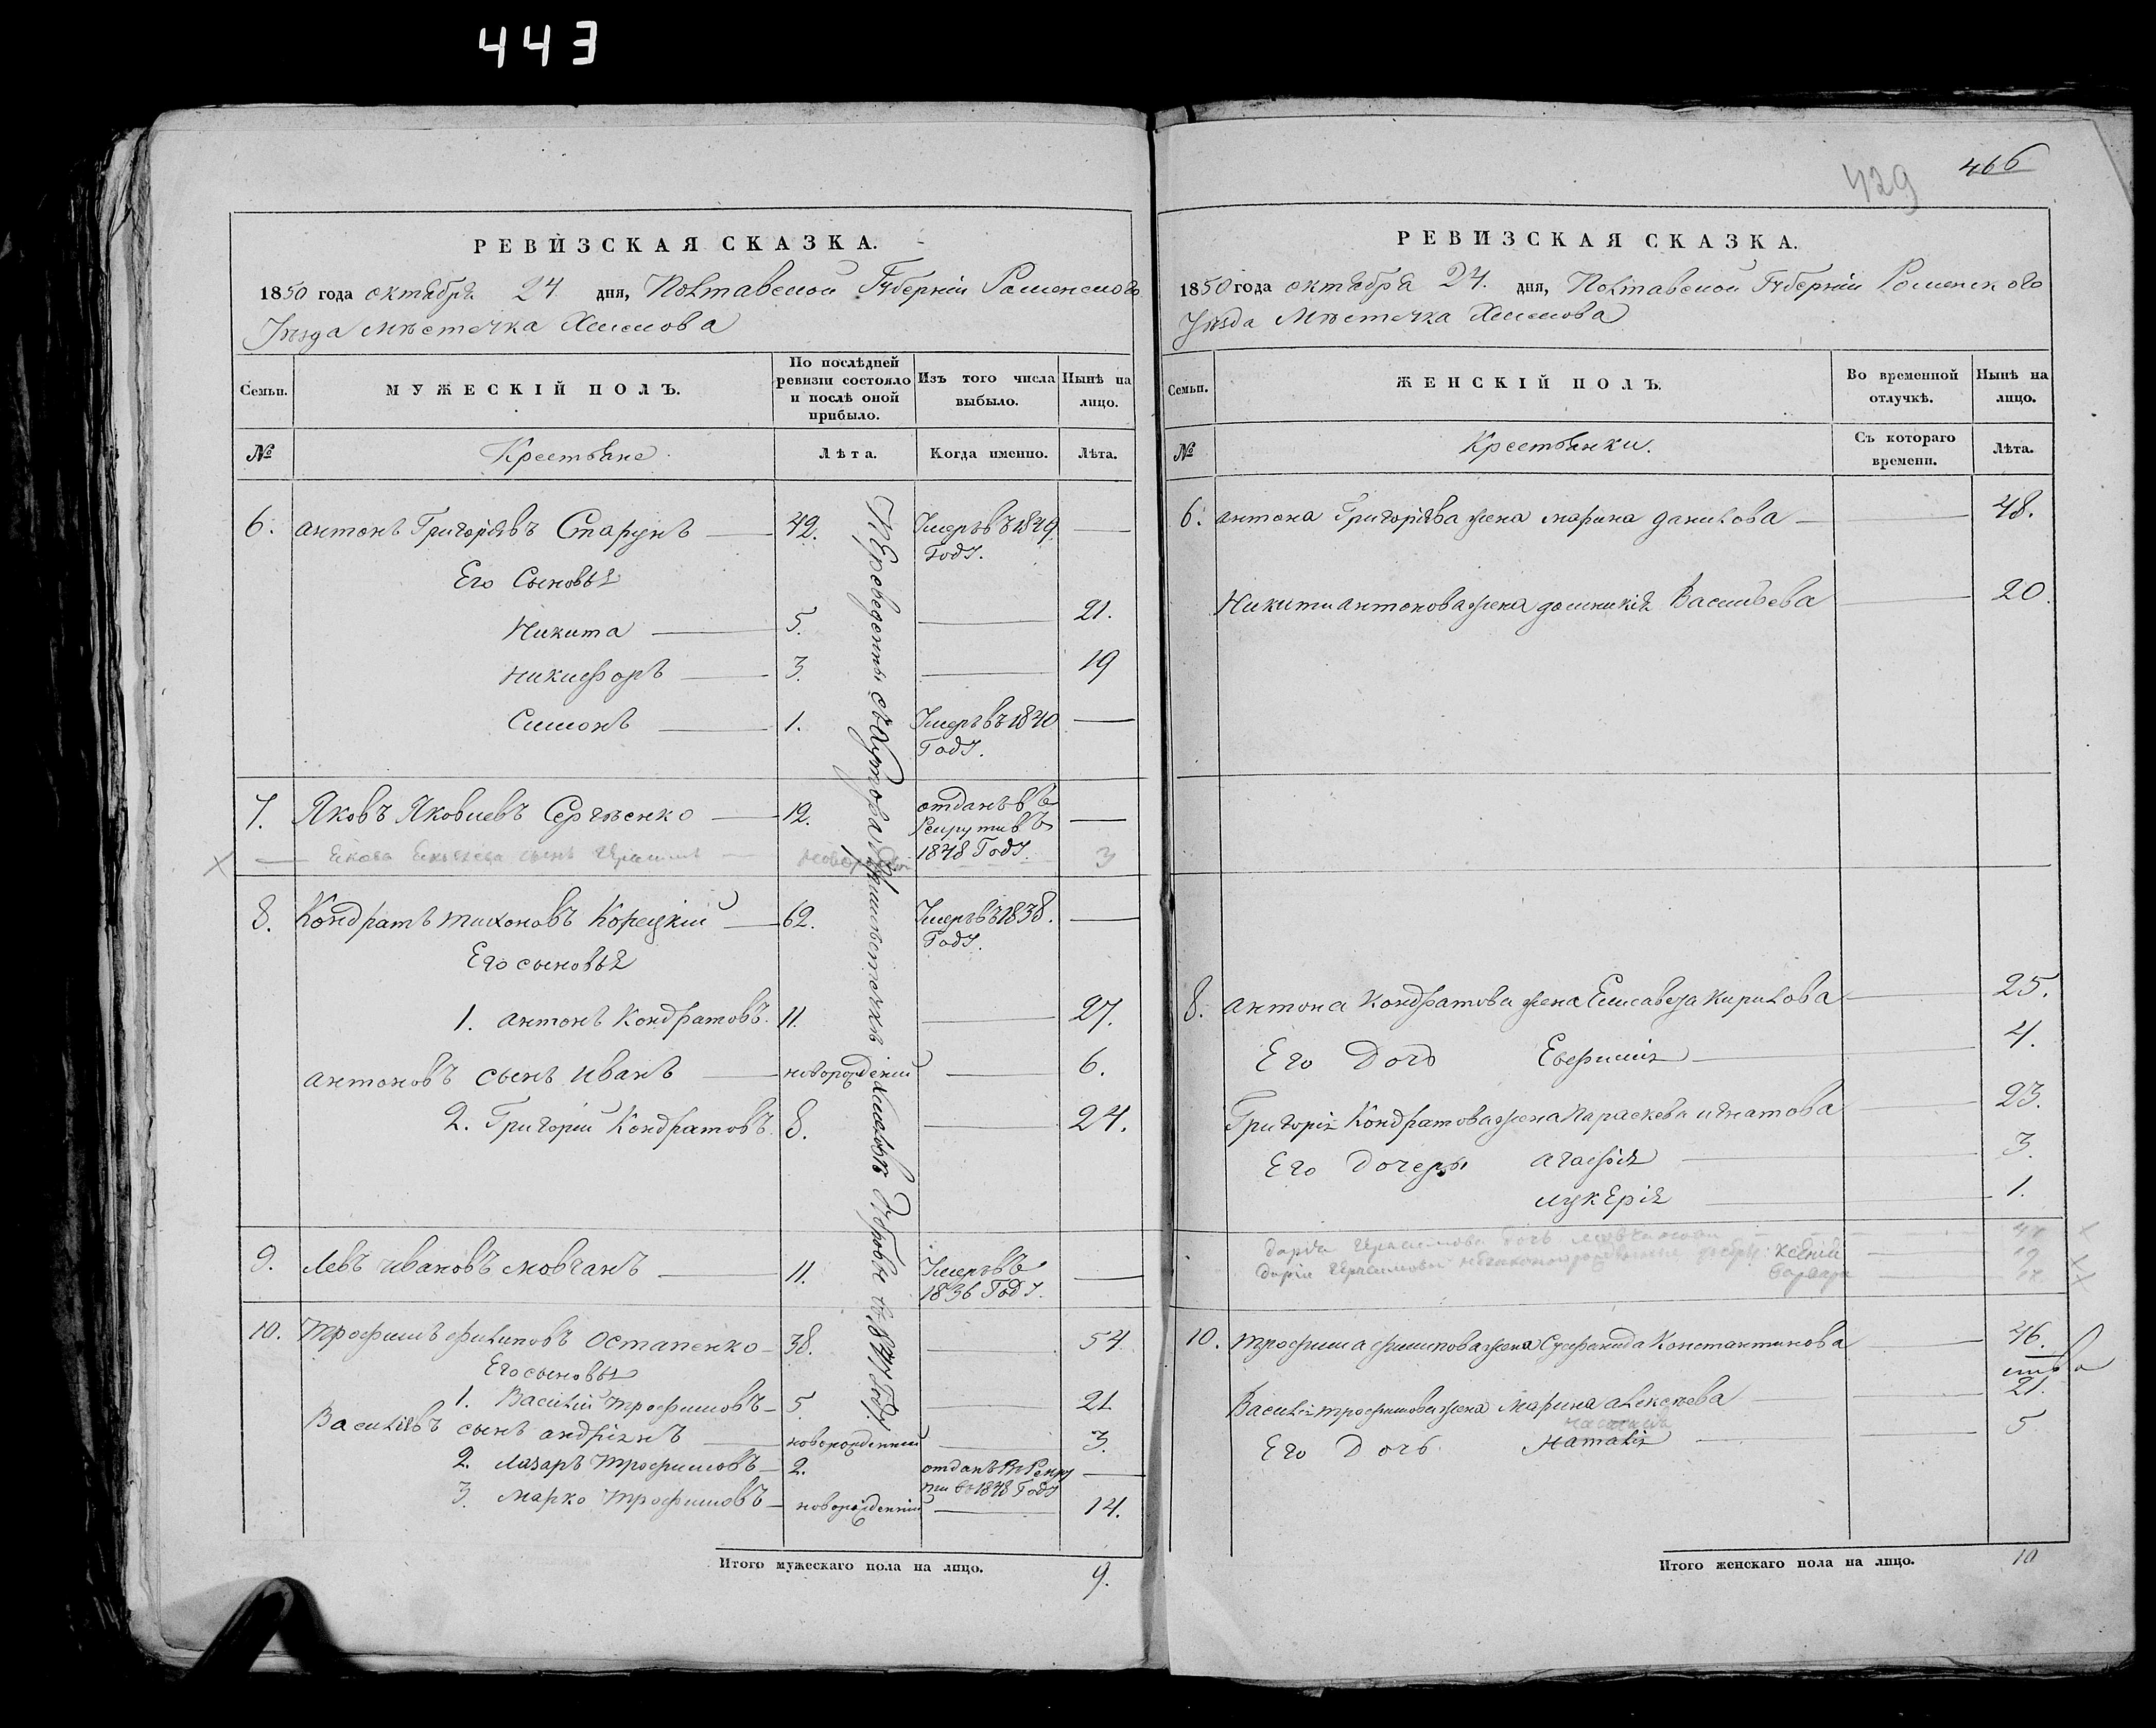 443
РЕВИЗСКАЯ СКАЗКА.
1850 года октября 24 дня, Полтавской Губерніи Роменского
Уезда местечка Хмелова
Семьи. МУЖЕСКІЙ ПОЛЪ. По послѣдней ревизіи состояло и послѣ оной прибыло. Изъ того числа выбыло. Нынѣ на лицо.
№ Крестьяне Лѣта. Когда именно. Лѣта.
6. Антонъ Григоріевъ Старунъ 42. Умеръ въ 1849 Году.
Его Сыновья
Никита 5. 21.
Никифоръ 3. 19
Симонъ 1. Умеръ въ 1840 Году.
7. Яковъ Яковлевъ Сергѣенко 12. отданъ въ Рекруты въ 1848 Году.
сынъ 3
8. Кондратъ Тихоновъ Корецкій 62. Умеръ въ 1838. Году.
Его сыновья
1. Антонъ Кондратовъ. 11. 27.
Антоновъ сынъ Иванъ новорожденый 6.
2. Григорій Кондратовъ. 8. 24.
9. Левъ Ивановъ Мовчанъ 11. Умеръ въ 1836 Году.
10. Трофимъ Филиповъ Остапенко 38. 54
Его сыновья
1. Василій Трофимовъ 5. 21
Василіевъ сынъ Андріянъ новорожденный 3.
2. Лазаръ Трофимовъ 2. отданъ в Рекруты въ 1848 Году
3. Марко Трофимовъ новорожденный 14.
Итого мужескаго пола на лицо. 9.
Переведены съ Хутора при местечке Хмелове Дубровы в 1841 Году.
429
466
РЕВИЗСКАЯ СКАЗКА.
1850 года октября 24. дня, Полтавской Губерніи Роменского
Уезда Местечка Хмелова
Семьи. ЖЕНСКІЙ ПОЛЪ. Во временной отлучкѣ. Нынѣ на лицо.
№ Крестьянки. Съ котораго времени. Лѣта.
6. Антона Григоріева жена Марина Данилова 48.
Никиты Антонова жена Домникія Васильева 20.
8. Антона Кондратова жена Елисавета Кирилова 25.
Его Дочь Евфимія 4.
Григорія Кондратова жена Параскева Игнатова 23.
Его Дочеры Агафія 3.
Лукерія 1.
Дарія Герасимова
Дарія Герасимовой
Варвара
10. Трофима Филипова жена Стефанида Константинова 46.
Василія Трофимова жена Марина Алексеева 21.
Его Дочь Наталія 5
Итого женскаго пола на лицо. 10